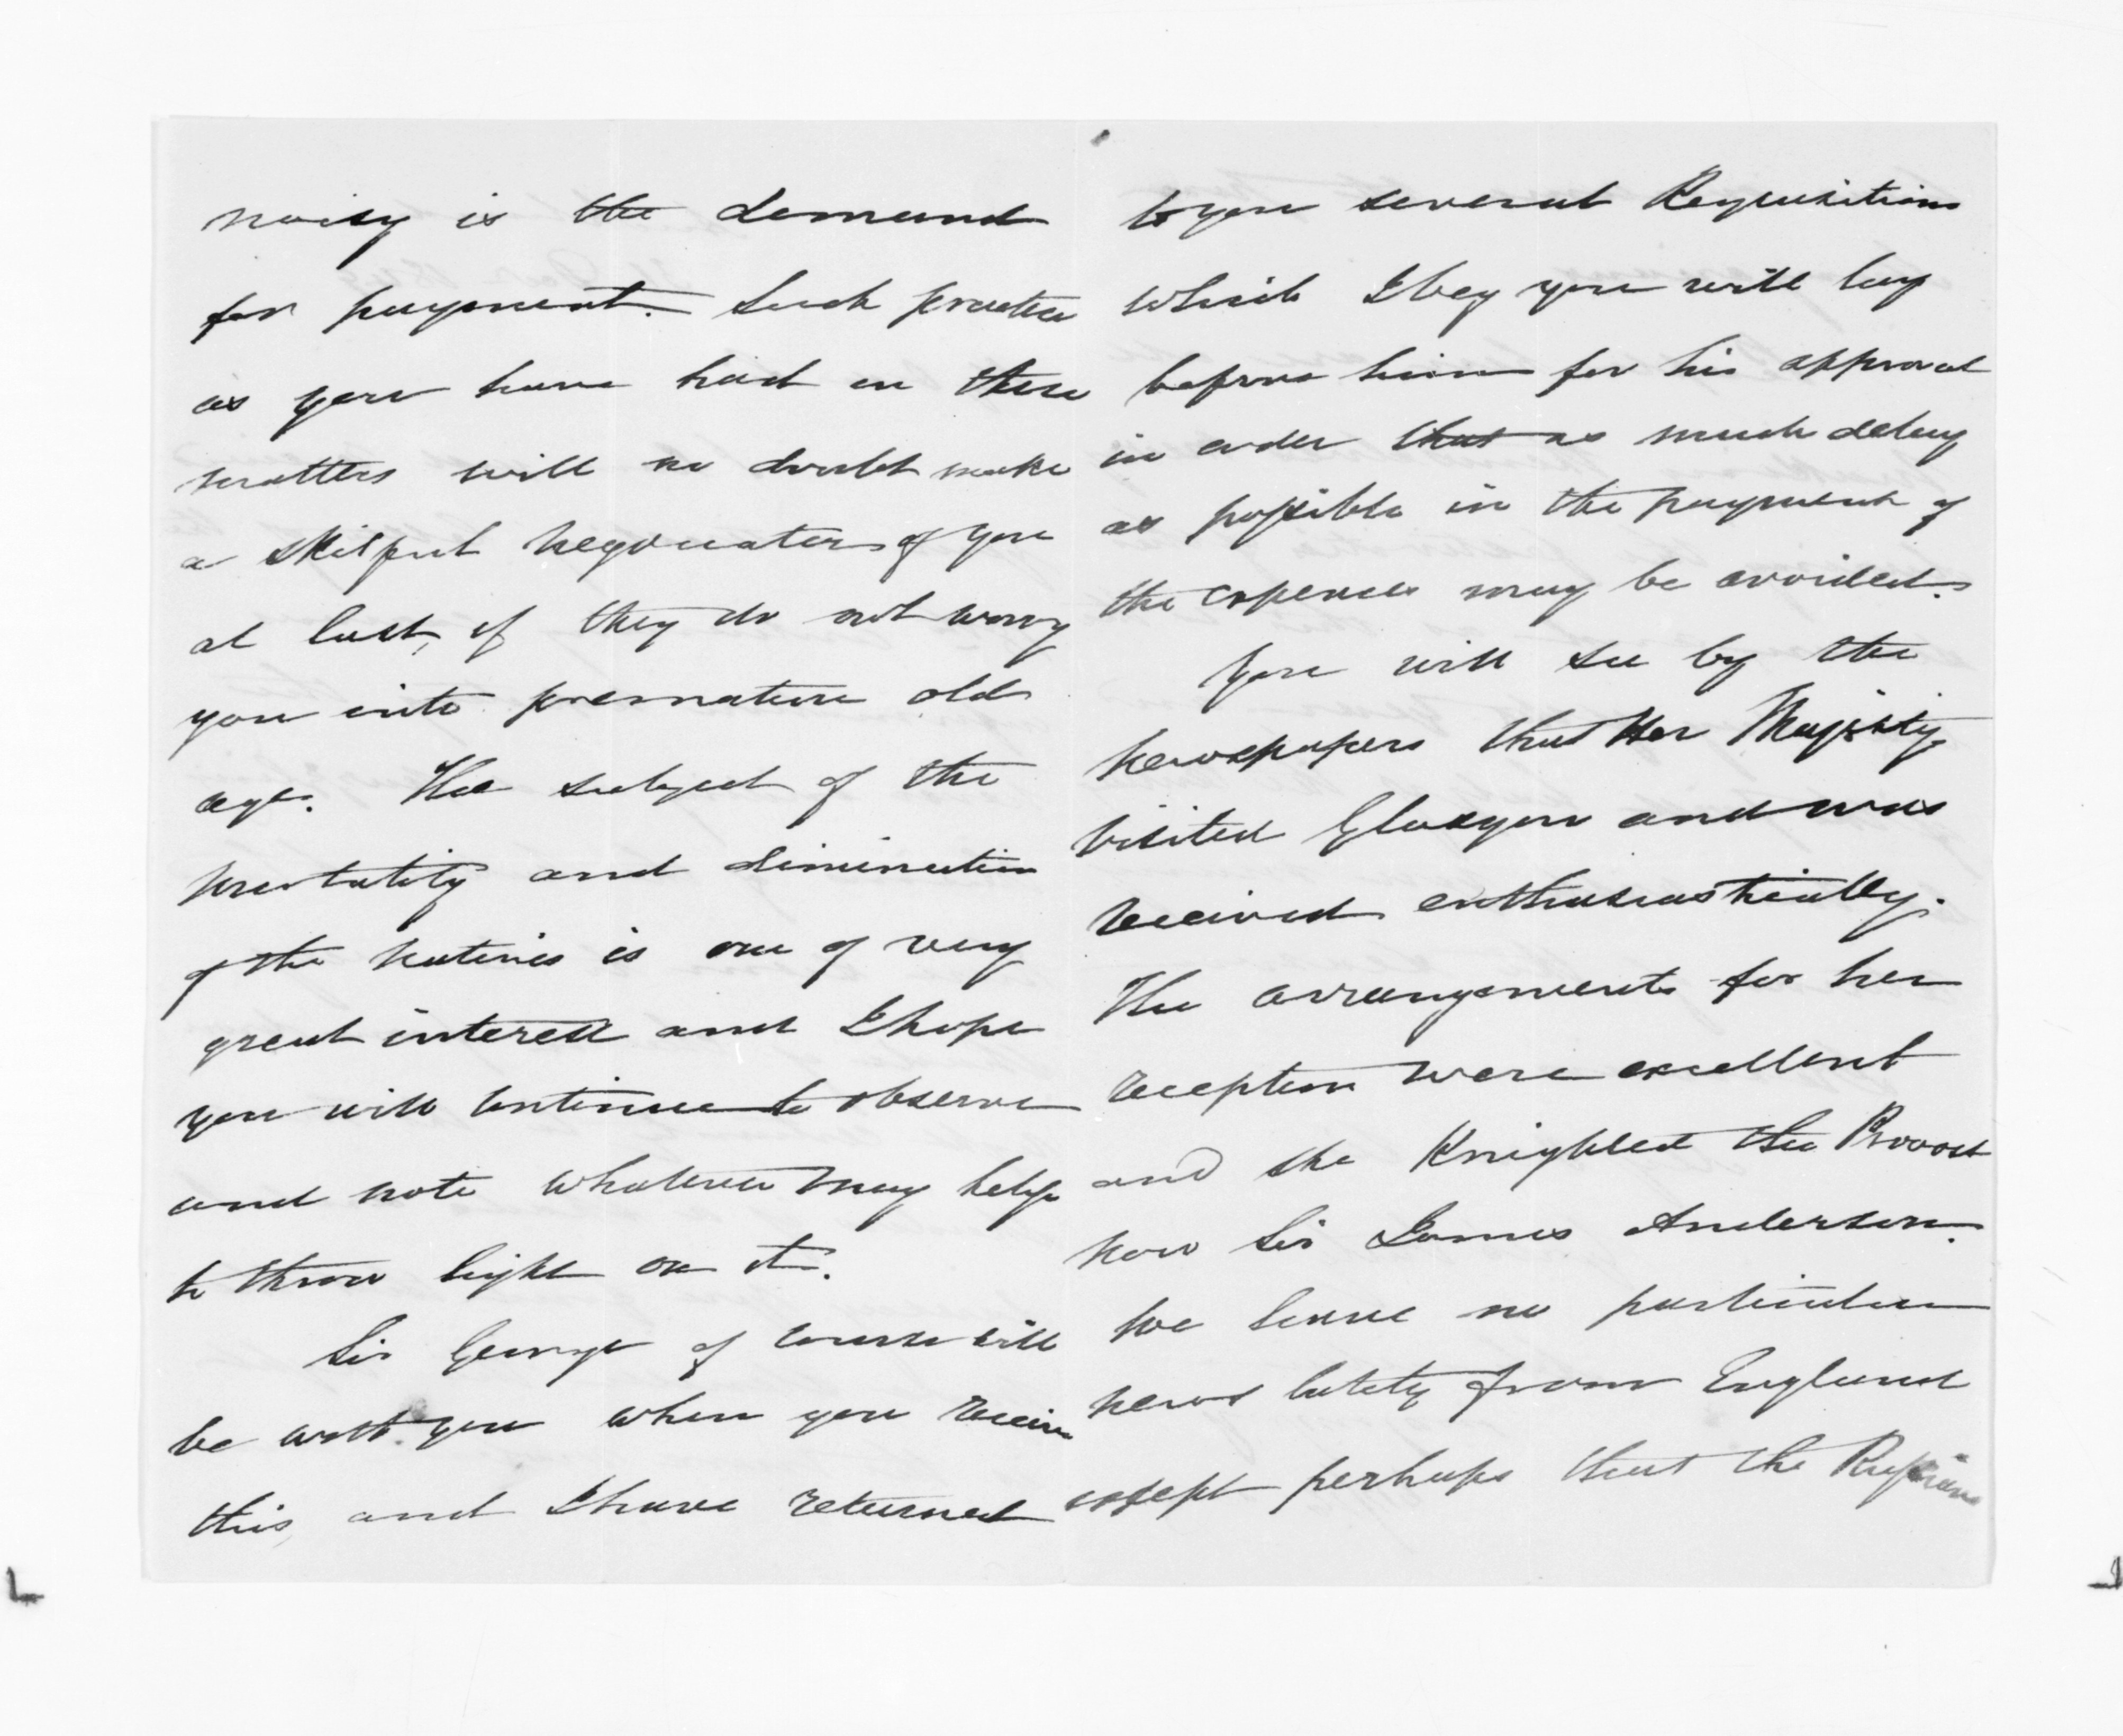 noisy is the demand
for payment. Such practice
as you have had in these
matters will no doubt make
a skilful negociator of you
at last, if they do not worry
you into premature old
age. The subject of the
mortality and diminution
of the natives is one of very
great interest and I hope
you will continue to observe
and note whatever may help
to throw light on it.
Sir George of course will
be with you when you receive
this, and I have returned
to you several Requisitions
which I beg you will lay
before him for his approval
in order that as much delay
as possible in the payment of
the expenses may be avoided.
You will see by the
Newspapers that Her Majesty
visited Glasgow and was
received enthusiastically.
The arrangements for her
reception were excellent
and she Knighted the Provost
now Sir James Anderson.
We have no particular
news lately from England
except perhaps that the Russians